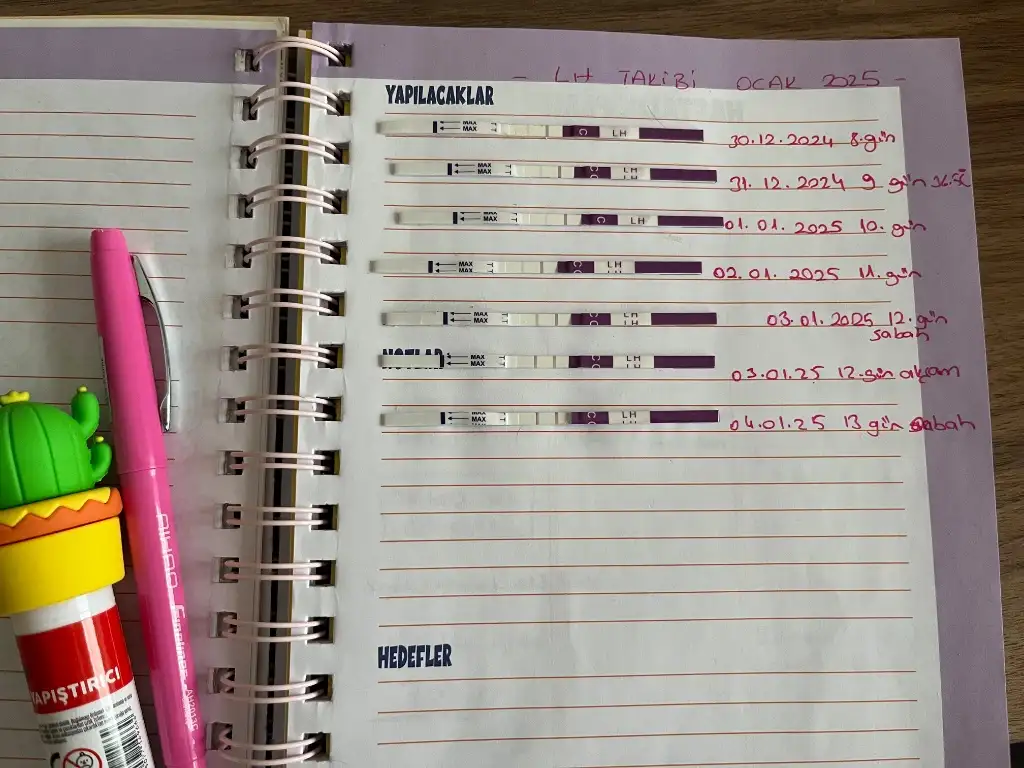 - LH TAKİBİ OCAK 2025 -
YAPILACAKLAR
MAX
MAX
T
C
LH
30.12.2024 8.gün
MAX
MAX
T
C
LH
31.12.2024 9 gün
MAX
MAX
T
C
LH
01.01.2025 10.gün
MAX
MAX
T
C
LH
02.01.2025 11.gün
MAX
MAX
T
C
LH
03.01.2025 12.gün
sabah
NOTLAR
MAX
MAX
T
C
LH
03.01.25 12.gün akşam
MAX
MAX
T
C
LH
04.01.25 13 gün sabah
HEDEFLER
YAPIŞTIRICI
Fineliner